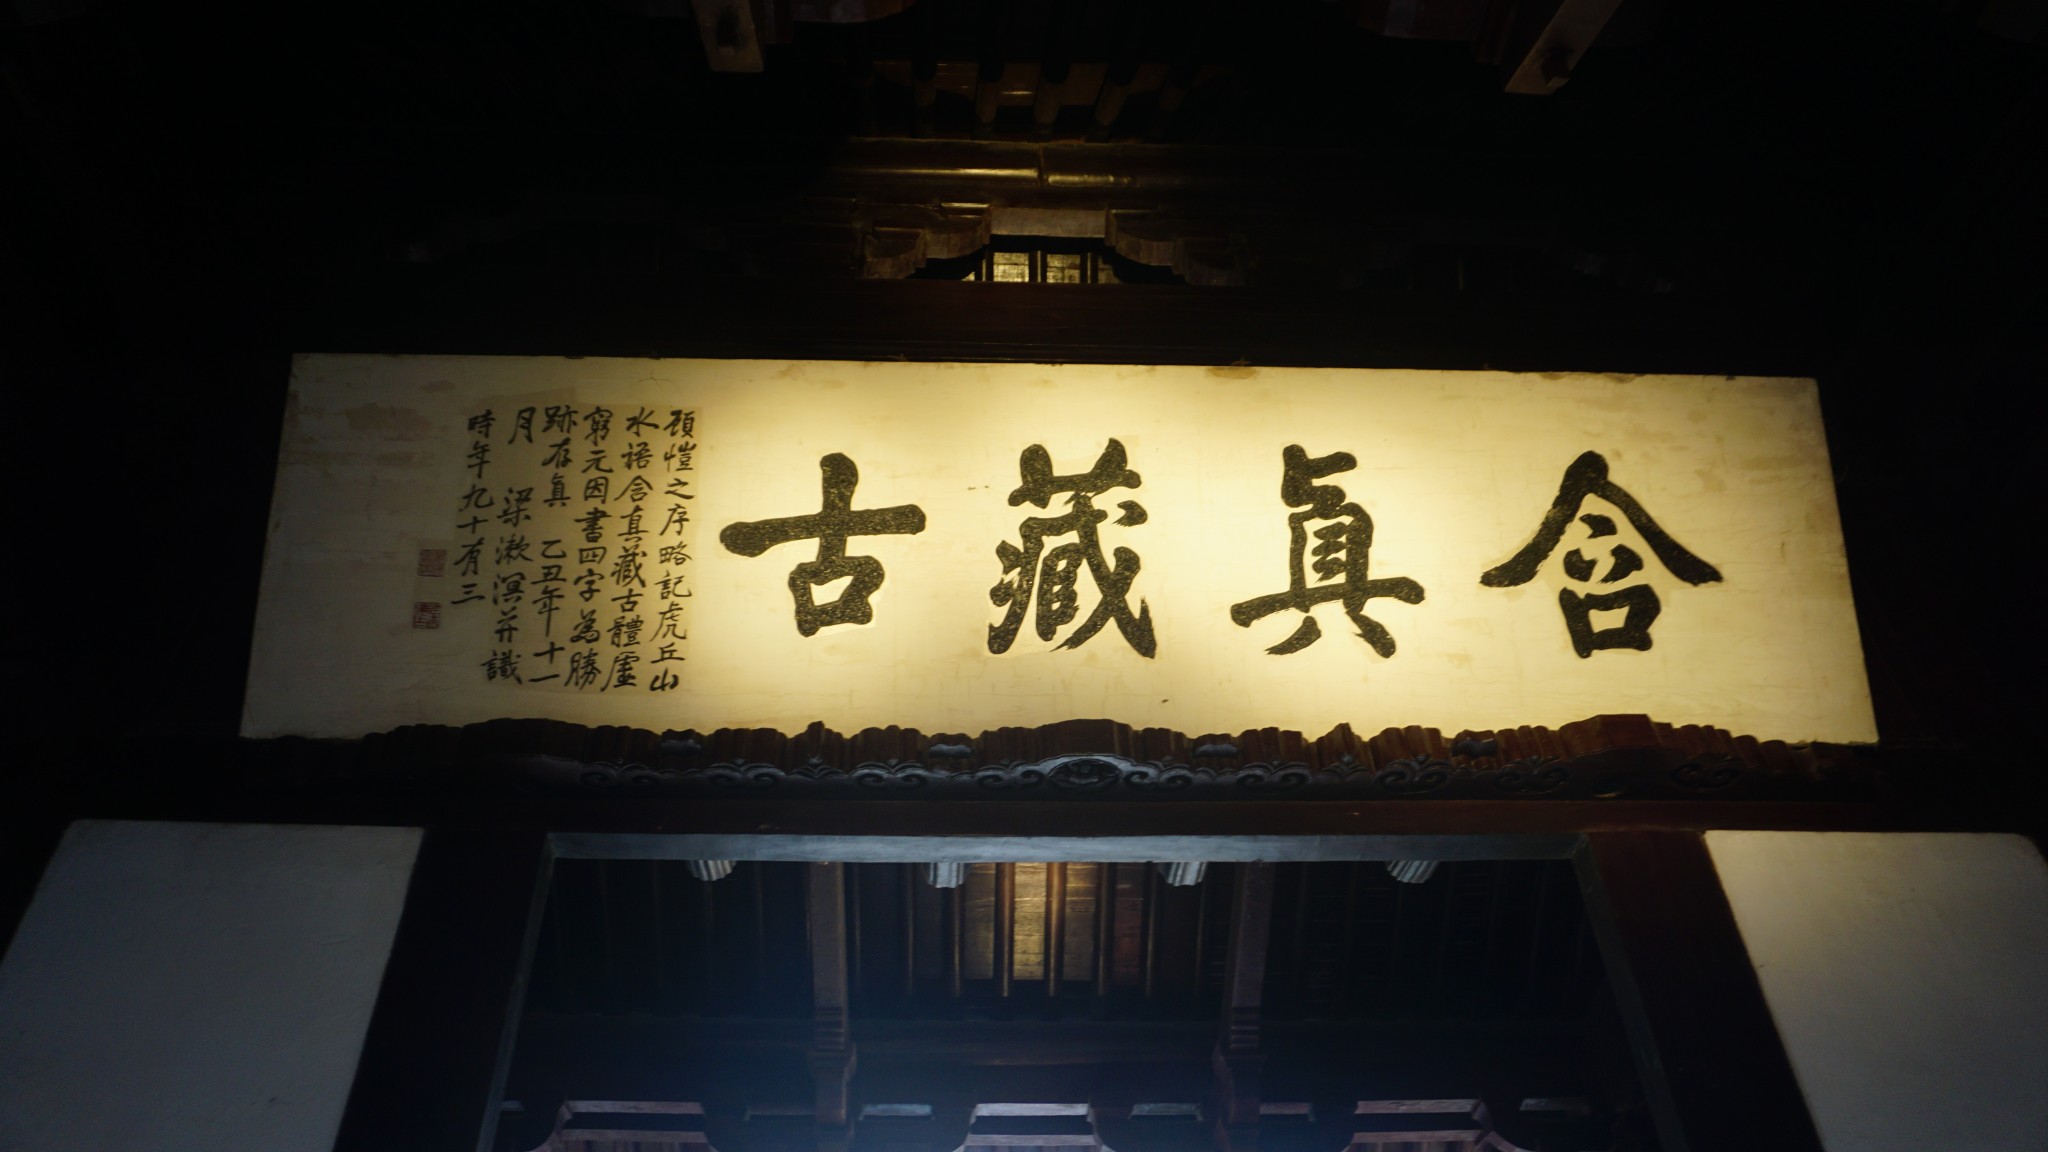 含真藏古
顾愷之序略記虎丘山
水語含真藏古體虛
窮元因書四字為勝
跡存真 乙丑年十一
月 梁漱溟并識
時年九十有三